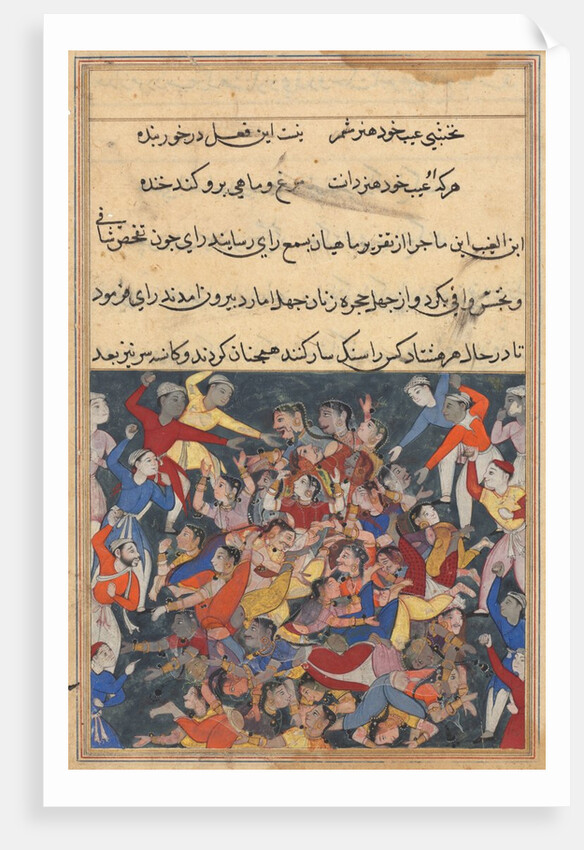 نخشبی عیب خود هنر شمر نیت این فعل در خور بنده
هرکه او عیب خود هنر دانت مرغ و ماهی برو کند خنده
ابن الغیب این ماجرا از تقریر ماهیان بسمع رای رسانید رای چون تفحص شافی
و تجسس وافی بکرد و از چهل حجره زنان چهل امارد بیرون آمدند رای فرمود
تا در حال هر هشتاد کس را سنکسار کنند همچنان کردند و کاسه سر نیز بعد